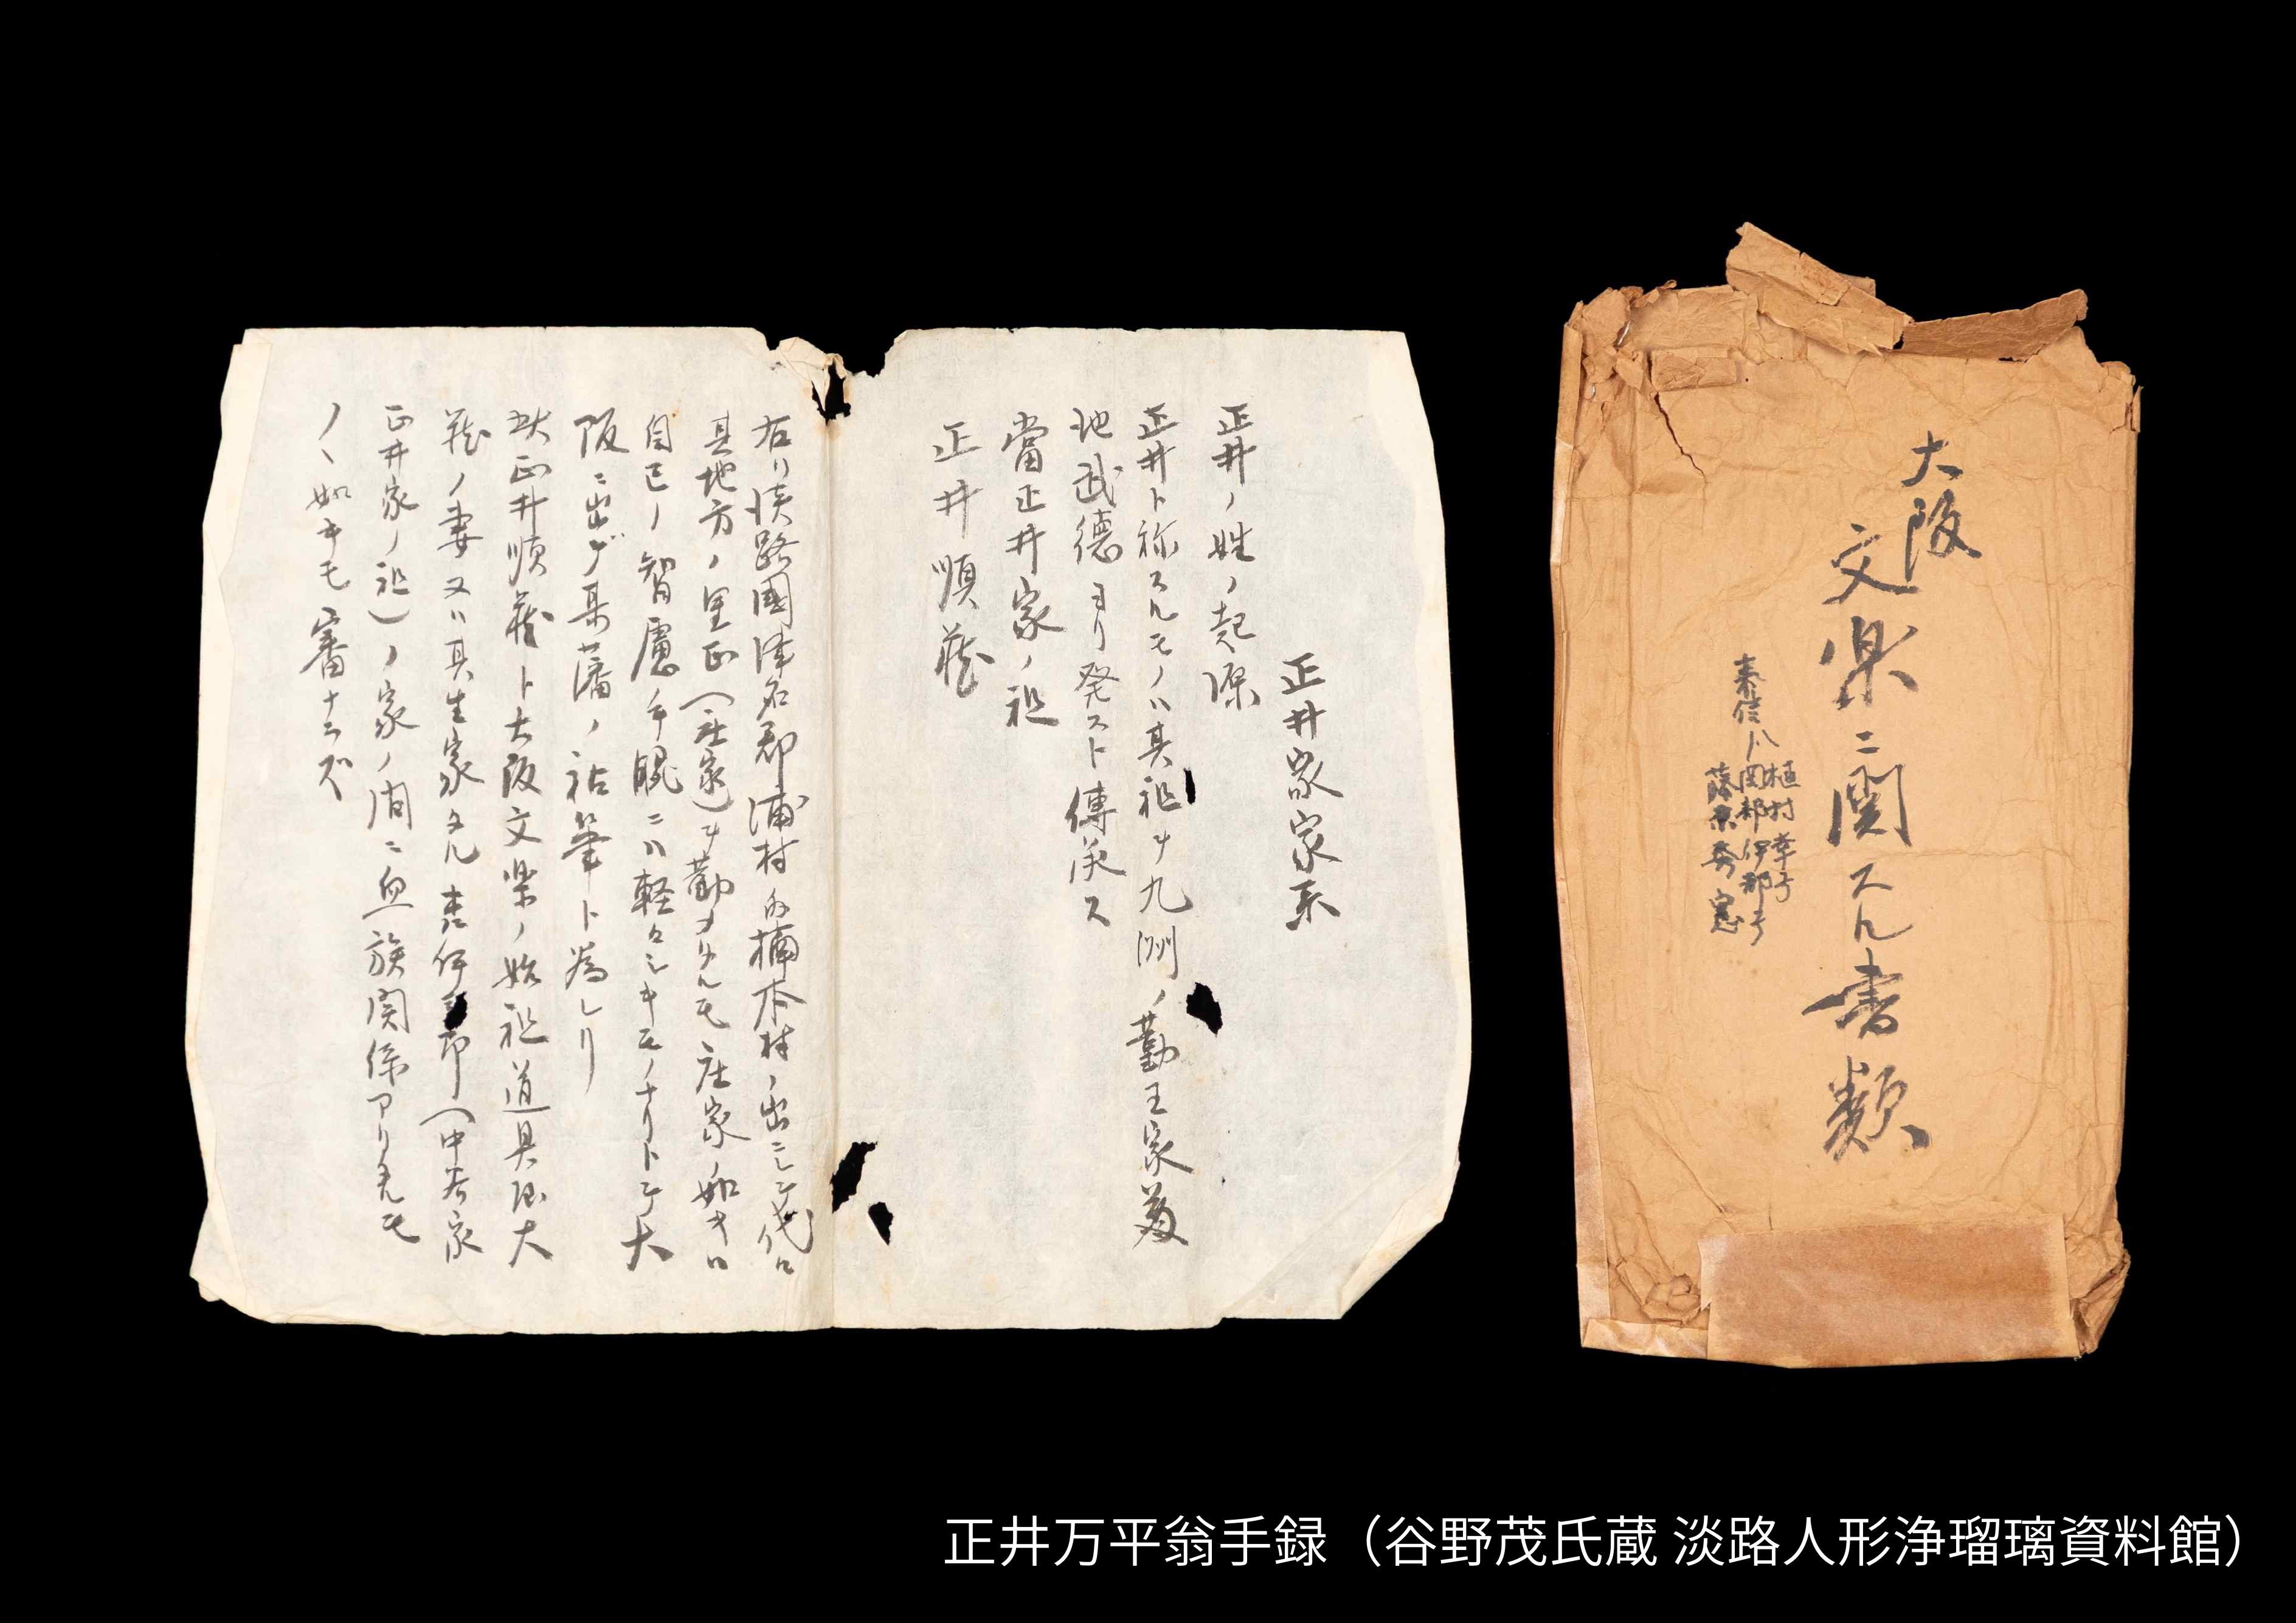 正井家家系
正井ノ姓ノ起源
正井ト称スルモノハ其祖ヲ九洲ノ勤王家菊
地武徳ヨリ発スト傳承ス
當正井家ノ祖
正井順蔵
右ハ淡路國津名郡浦村内楠本村ノ出ニシテ代々
其地方ノ里正(庄家)ヲ勤メタルモ庄家ノ如キハ
自己ノ智慮ヲ眼ニハ軽々シキモノナリトシテ大
阪ニ出デ某藩ノ祐筆ト為レリ
然正井順蔵ト大阪文楽ノ始祖道具屋大
蔵ノ妻又ハ其生家タル嘉伊 郎(中谷家
正井家ノ祖)ノ家ノ間ニ血族関係アリタルモ
ノヽ如キモ審ナラズ
大阪
文楽ニ関スル書類
来信ハ
植村幸子
岡部伊都子
藤原秀憲
正井万平翁手録（谷野茂氏蔵 淡路人形浄瑠璃資料館）